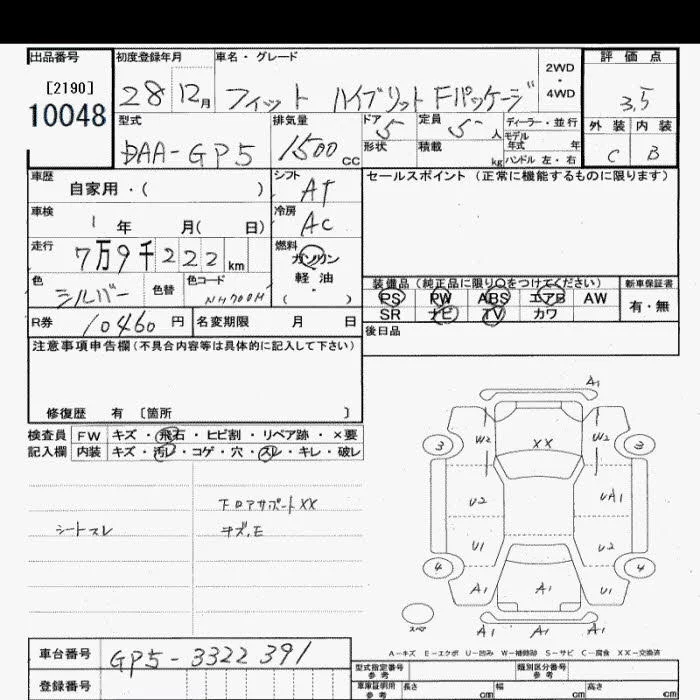 出品番号
[2190]
10048
初度登録年月
28 12月
車名・グレード
フィット ハイブリット Fパッケージ
2WD
・
4WD
評価点
3.5
外装 内装
C B
型式
DAA-GP5
排気量
1500cc
ドア 5
形状
定員 5人
積載 kg
ディーラー・並行
モデル
年式 年
ハンドル 左・右
車歴
自家用・( )
シフト
AT
車検
1年 月( 日)
冷房
AC
走行
7万9千222km
燃料
ガソリン
・
軽油
・
( )
色
シルバー
色替
色コード
NH700M
R券 10460円
名変期限 月 日
セールスポイント(正常に機能するものに限ります)
装備品(純正品に限り○をつけてください)
PS PW ABS エアB AW
SR ナビ TV カワ
新車保証書
有・無
後日品
注意事項申告欄(不具合内容等は具体的に記入して下さい)
修復歴 有 〔箇所 〕
検査員
記入欄
FW キズ・飛石・ヒビ割・リペア跡・×要
内装 キズ・汚レ・コゲ・穴・スレ・キレ・破レ
シートスレ
キズ.E
A1
3 W2 XX W2 3
U2 UA1
U1 U2
4 A1 A1 U1 4
スペア
A1 A1 A1
A-キズ E-エクボ U-凹み W-補修跡 S-サビ C-腐食 XX-交換済
車台番号
GP5-3322391
登録番号
型式指定番号
参考
類別区分番号
参考
車庫証明用
参考
長さ cm
幅 cm
高さ cm